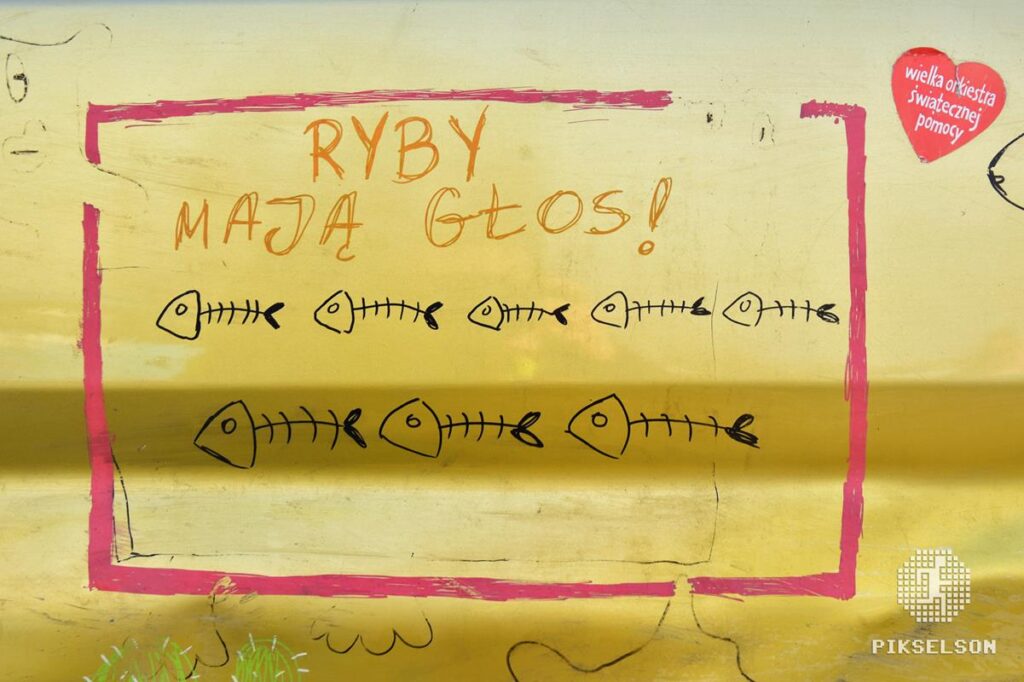 RYBY
MAJĄ GŁOS!
wielka orkiestra
świątecznej
pomocy
PIKSELSON